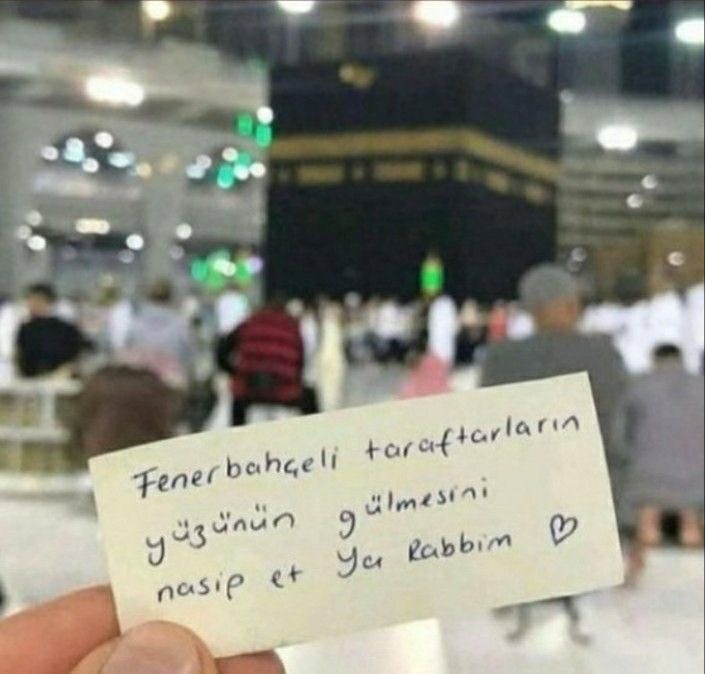 Fenerbahçeli taraftarların
yüzünün gülmesini
nasip et Ya Rabbim ♡